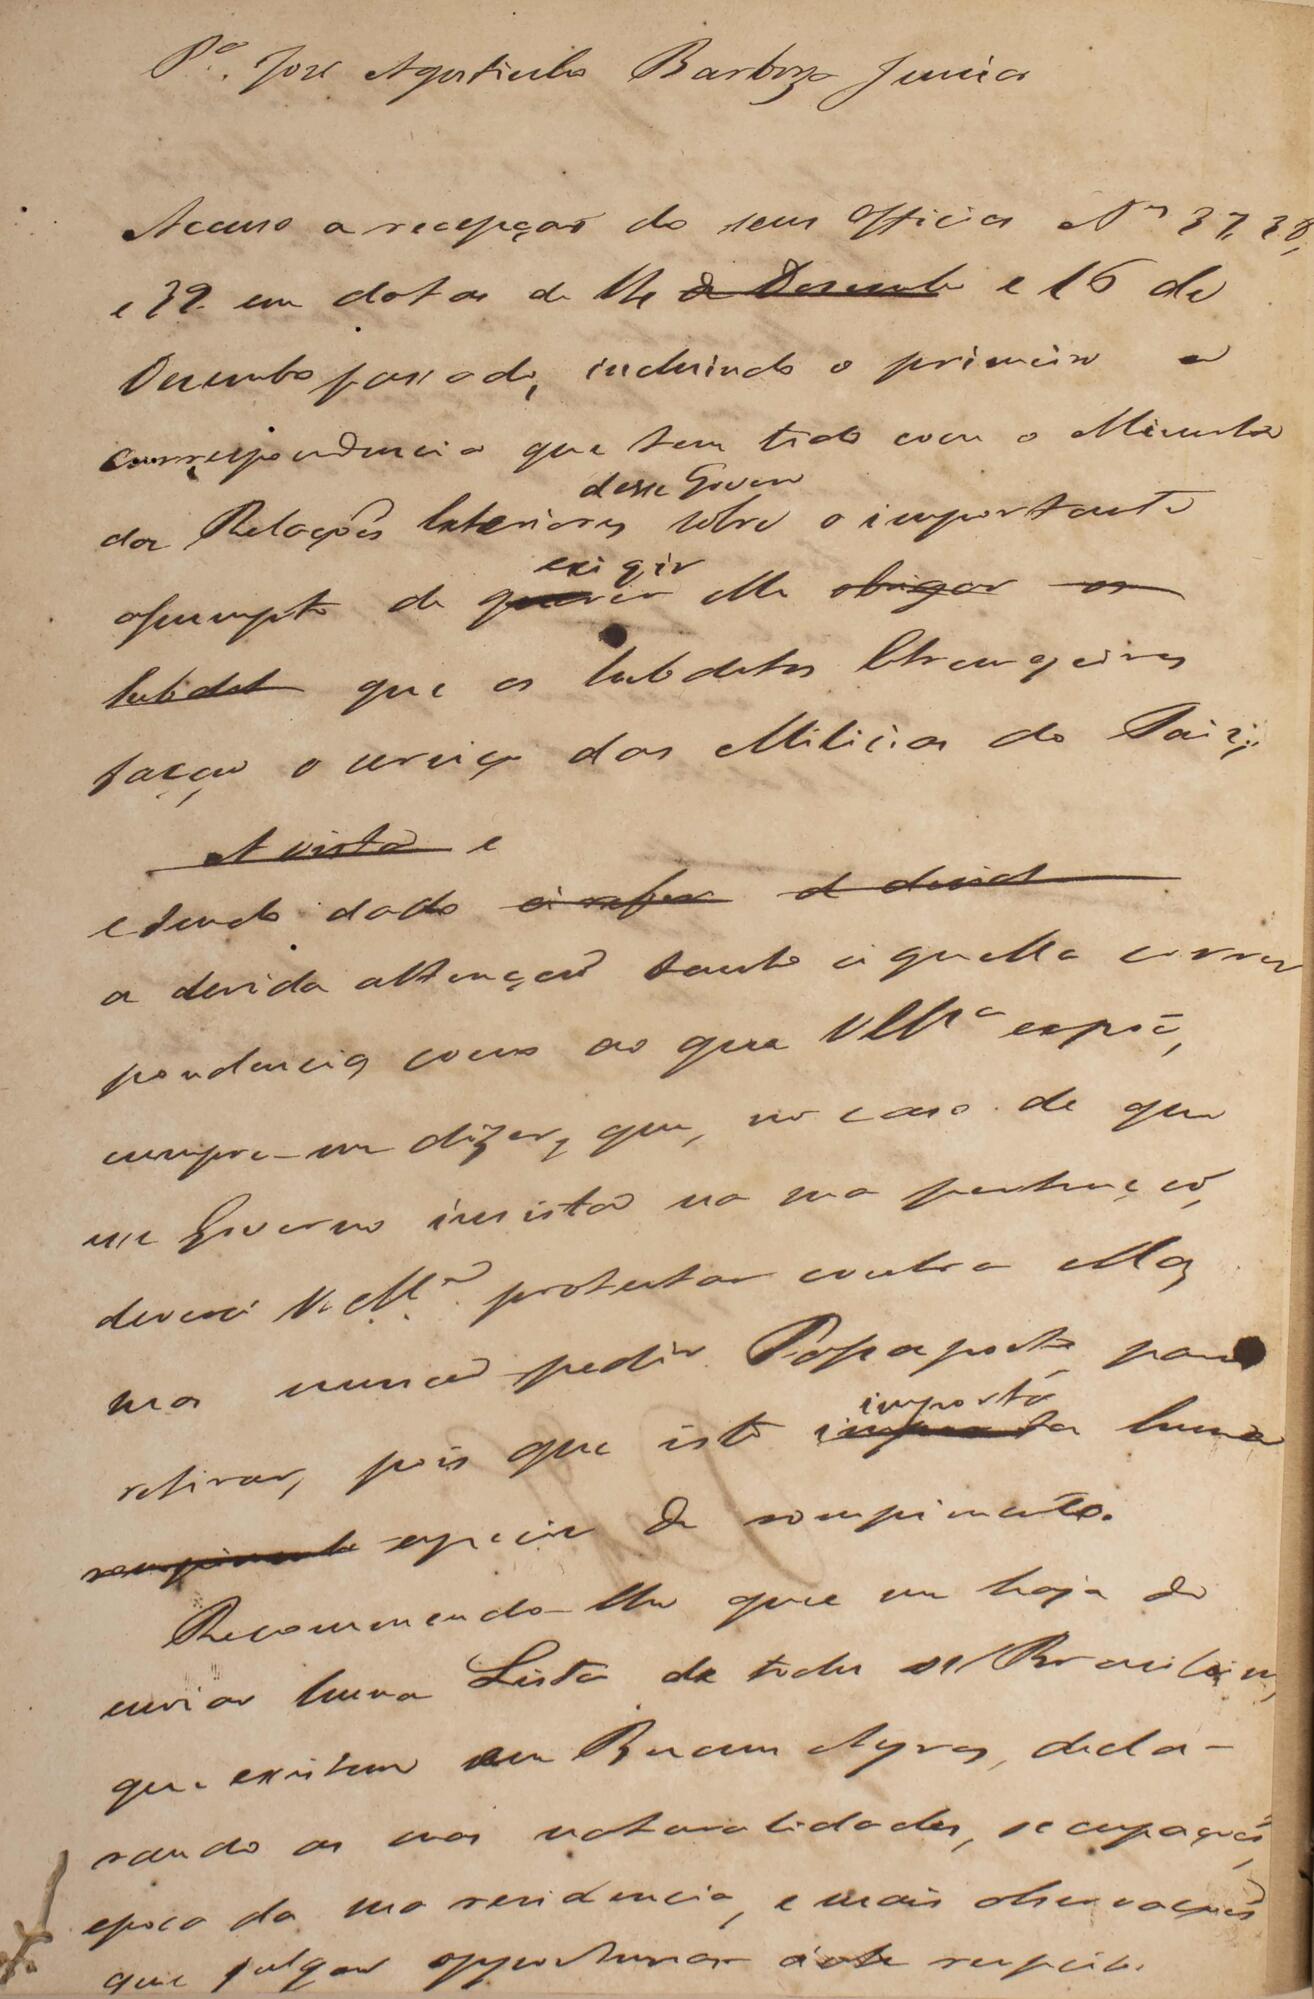 Pª. José Agostinho Barboza Junior
Accuso a recepção do seus Officios Nos 37, 38,
e 39. em datas de 14 de Dezembro e 16 de
Dezembro passado, incluindo o primeiro a
correspondencia que tem tido com o Ministro
desse Governo
das Relações Exteriores sobre o importante
exigir
assumpto de querer elle obrigar os
subdit que os subditos Estrangeiros
fação o serviço das Milicias do Paiz;
A vista e
e tendo dado
a devida attenção tanto áquella corres
pondencia, como ao que VMce expoẽ,
cumpre-me dizer, que, no caso de que
esse Governo insista na sua pertenção,
deverá V. Mce. protestar contra ella,
mas nunca pedir Passaporte, para
importa
retirar, pois que isto importa huma
rompimento especie de rompimento.
Recommendo-lhe que me haja de
enviar huma Lista de todos os Brasileiros,
que existem em Buenos Ayres, decla-
rando as suas naturalidades, occupações,
epoca da sua residencia, e mais observações
que julgar opportunas a este respeito.